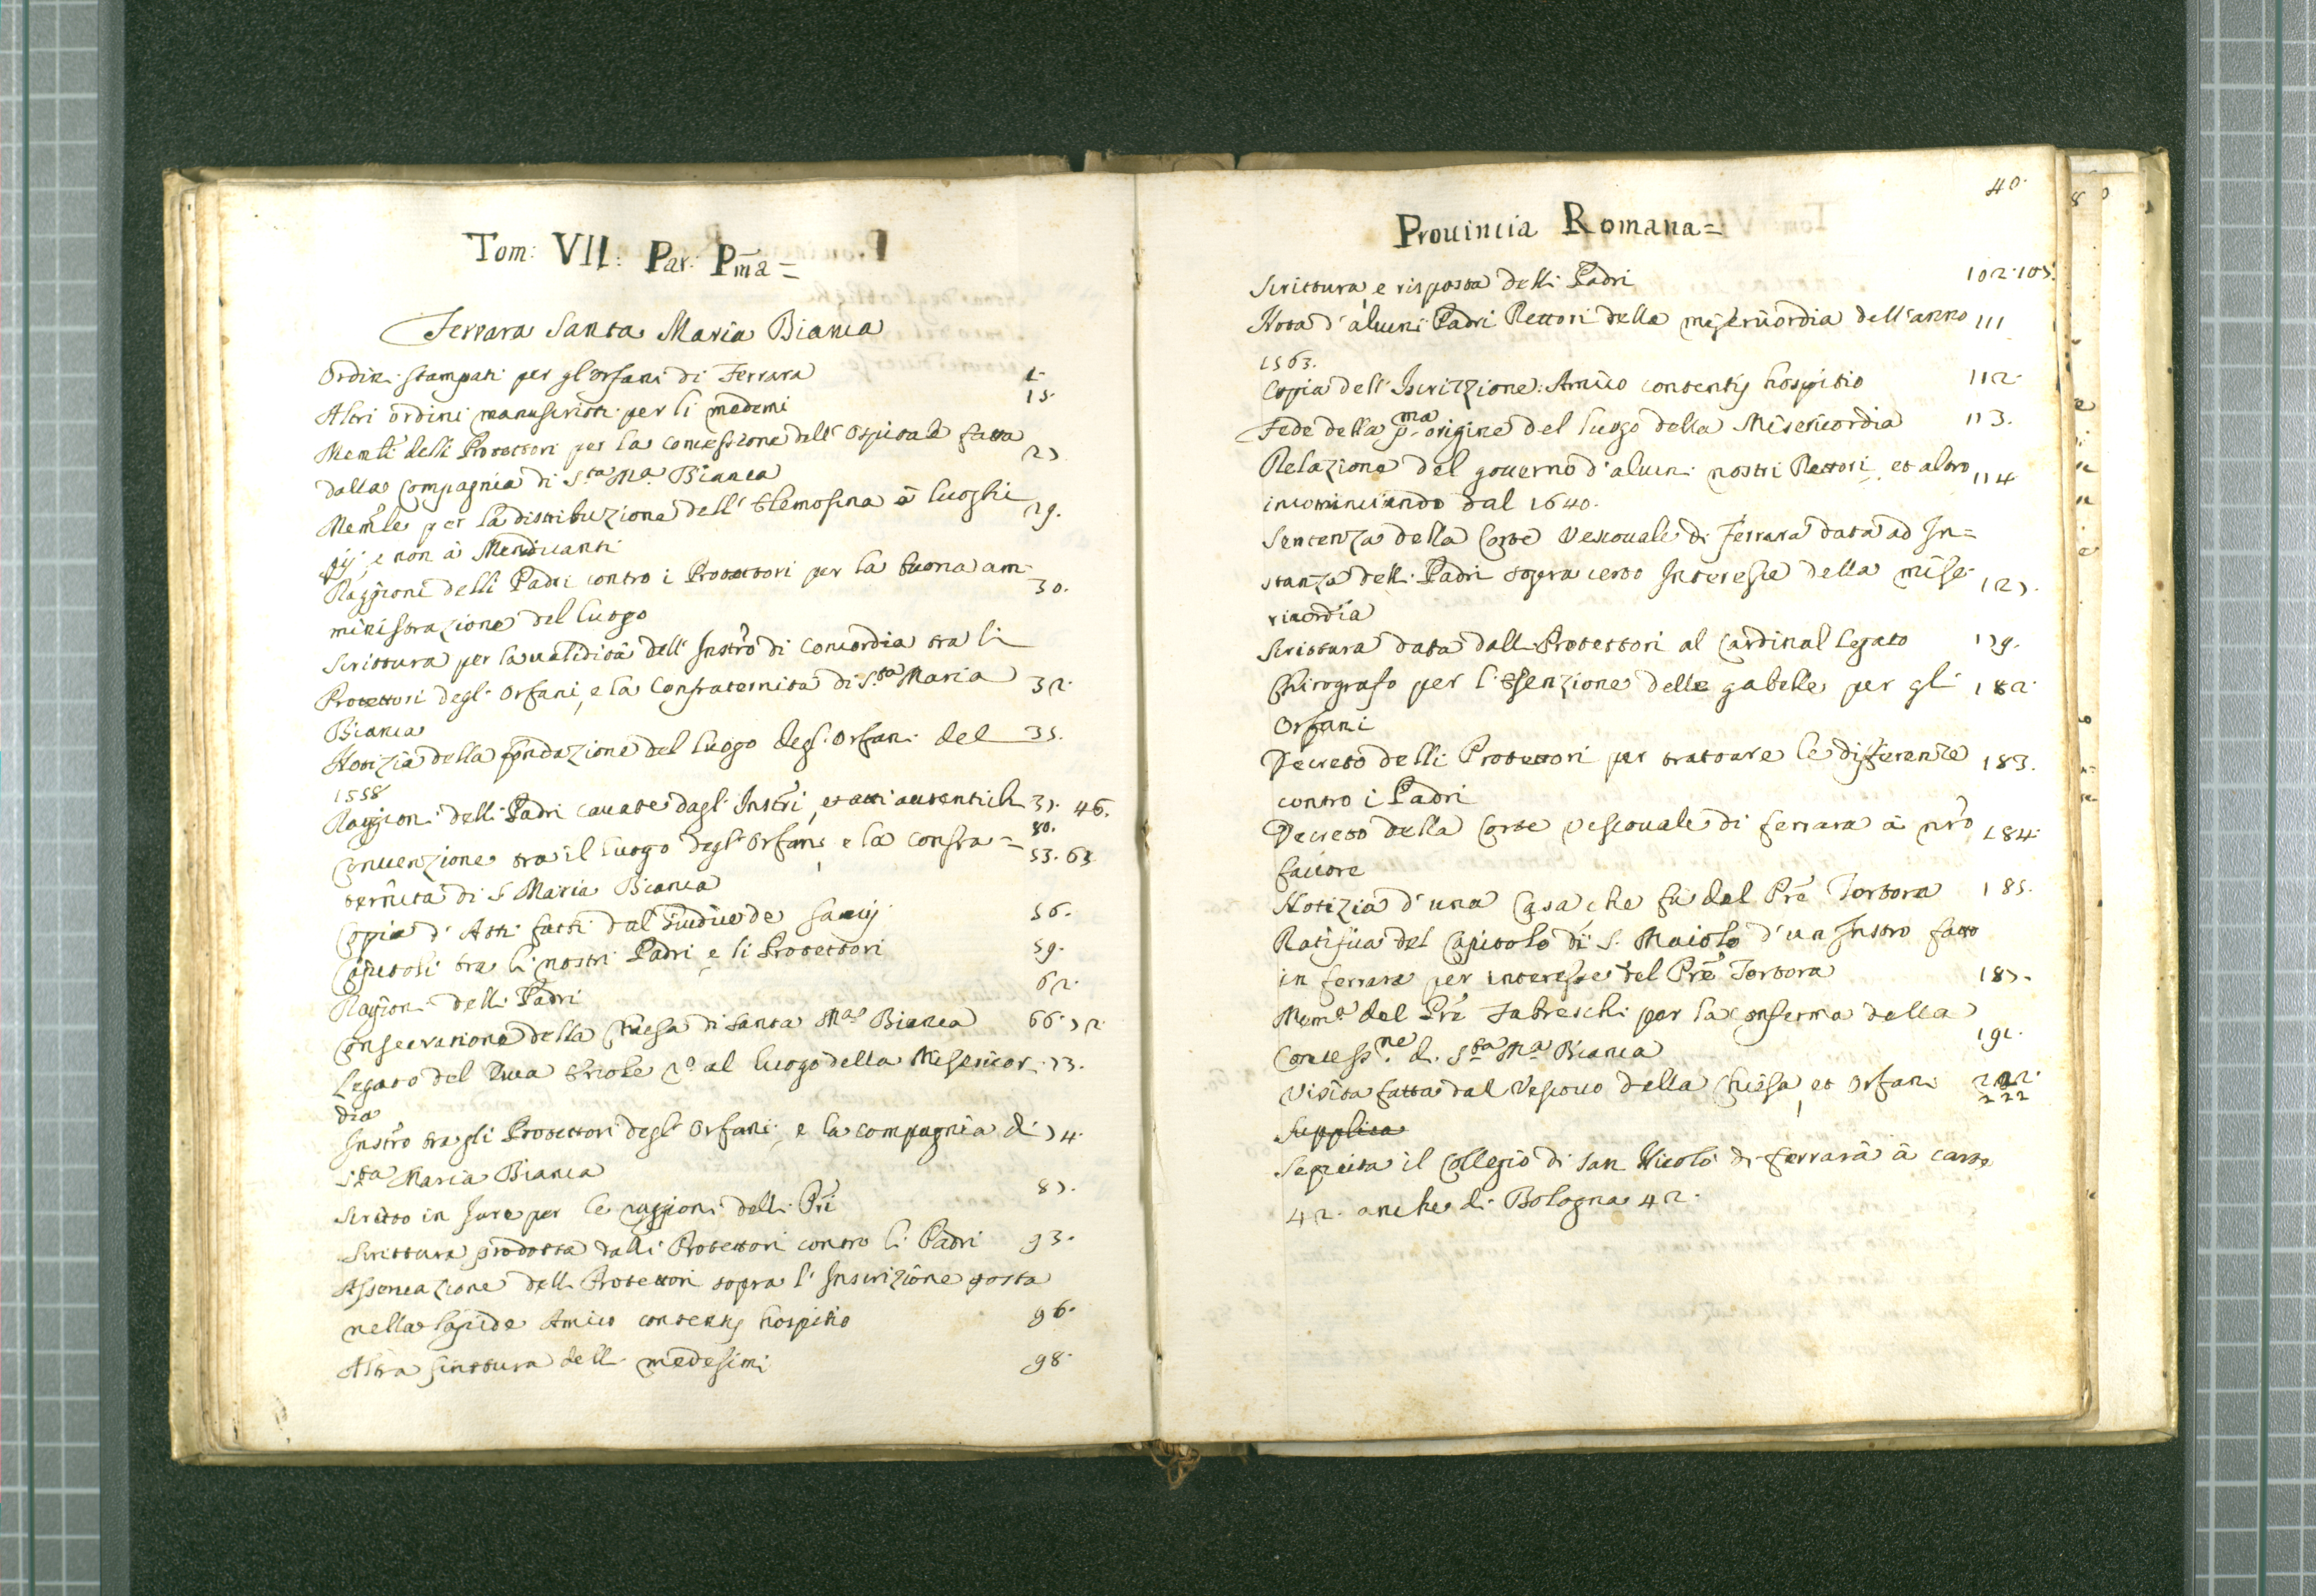 Tom: VII: Par: Pma=
Ferrara Santa Maria Bianca
Ordini stampati per gl'orfani di Ferrara 1.
Altri ordini manuscritti per li medemi 15.
Memli delli Protettori per la concessione dell'Ospitale fatta
dalla Compagnia di Sta Ma Bianca 27
Memle per la distribuzione dell'Elemosina à luoghi
pij, e non à Mendicanti 29.
Raggioni delli Padri contro i Protettori per la buona am-
ministrazione del luogo 30.
Scrittura per la ualidità dell'Instro di Concordia tra li
Protettori degl'Orfani, e la Confraternita di Sta Maria 32.
Bianca
Notizia della fondazione del luogo degl'Orfani del 35.
1558
Raggioni delli Padri cauate dagl'Instri, et atti autentichi 37. 46.
80.
Conuenzione tra il luogo degl'Orfani, e la confra= 53. 63
ternita di S. Maria Bianca
Copia d'Atti fatti dal Giudice de 56.
Capitoli tra li nostri Padri, e li Protettori 59.
Ragioni delli Padri 62.
Consecrazione della Chiesa di Santa Ma Bianca 66. 72.
Legato del Duca Ercole 2o al luogo della Misericor- 73.
dia
Instro tra gli Protettori degl'Orfani, e la compagnia di 74.
Sta Maria Bianca
Scritto in Jure per le raggioni delli Pri 87.
Scrittura prodotta dalli Protettori contro li Padri 93.
Assercazione delli Protettori sopra l'Inscrizione posta
nella lapide Amico contentus hospitio 96.
Altra scrittura delli medesimi 98.
40.
Prouincia Romana=
Scrittura, e risposta delli Padri 102. 105.
Nota d'alcuni Padri Rettori della misericordia dell'anno 111
1563.
Copia dell'Iscrizzione: Amico contentus hospitio 112.
Fede della pma origine del luogo della Misericordia 113.
Relazione del gouerno d'alcuni nostri Rettori, et altro 114
incominciando dal 1640.
Sentenza della Corte Vescouale di Ferrara data ad In=
stanza delli Padri sopra certo Interesse della mise- 127.
ricordia
Scrittura data dalli Protettori al Cardinal legato 179.
Chirografo per l'esenzione delle gabelle per gli 182.
Orfani
Decreto delli Protettori per trattare le differenze 183.
contro i Padri
Decreto della Corte Vescouale di ferrara à nro 184.
fauore
Notizia d'una Casa che fù del Pre Tortora 185.
Ratifica del Capitolo di S. Maiolo d'un Instro fatto
in ferrara per interesse del Pre Tortora 187.
Meme del Pre Fabreschi per la conferma della
Concessne di Sta Ma Bianca 191.
Visita fatta dal Vescouo della Chiesa, et Orfani 222.
222
Supplica
Sequita il Collegio di San Nicolò di ferrara à carte
42. anche di Bologna 42.